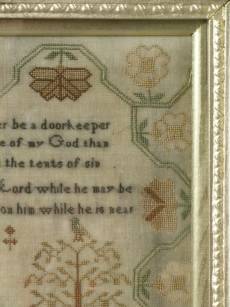 er be a doorkeeper
e of my God than
the tents of sin
Lord while he may be
on him while he is near